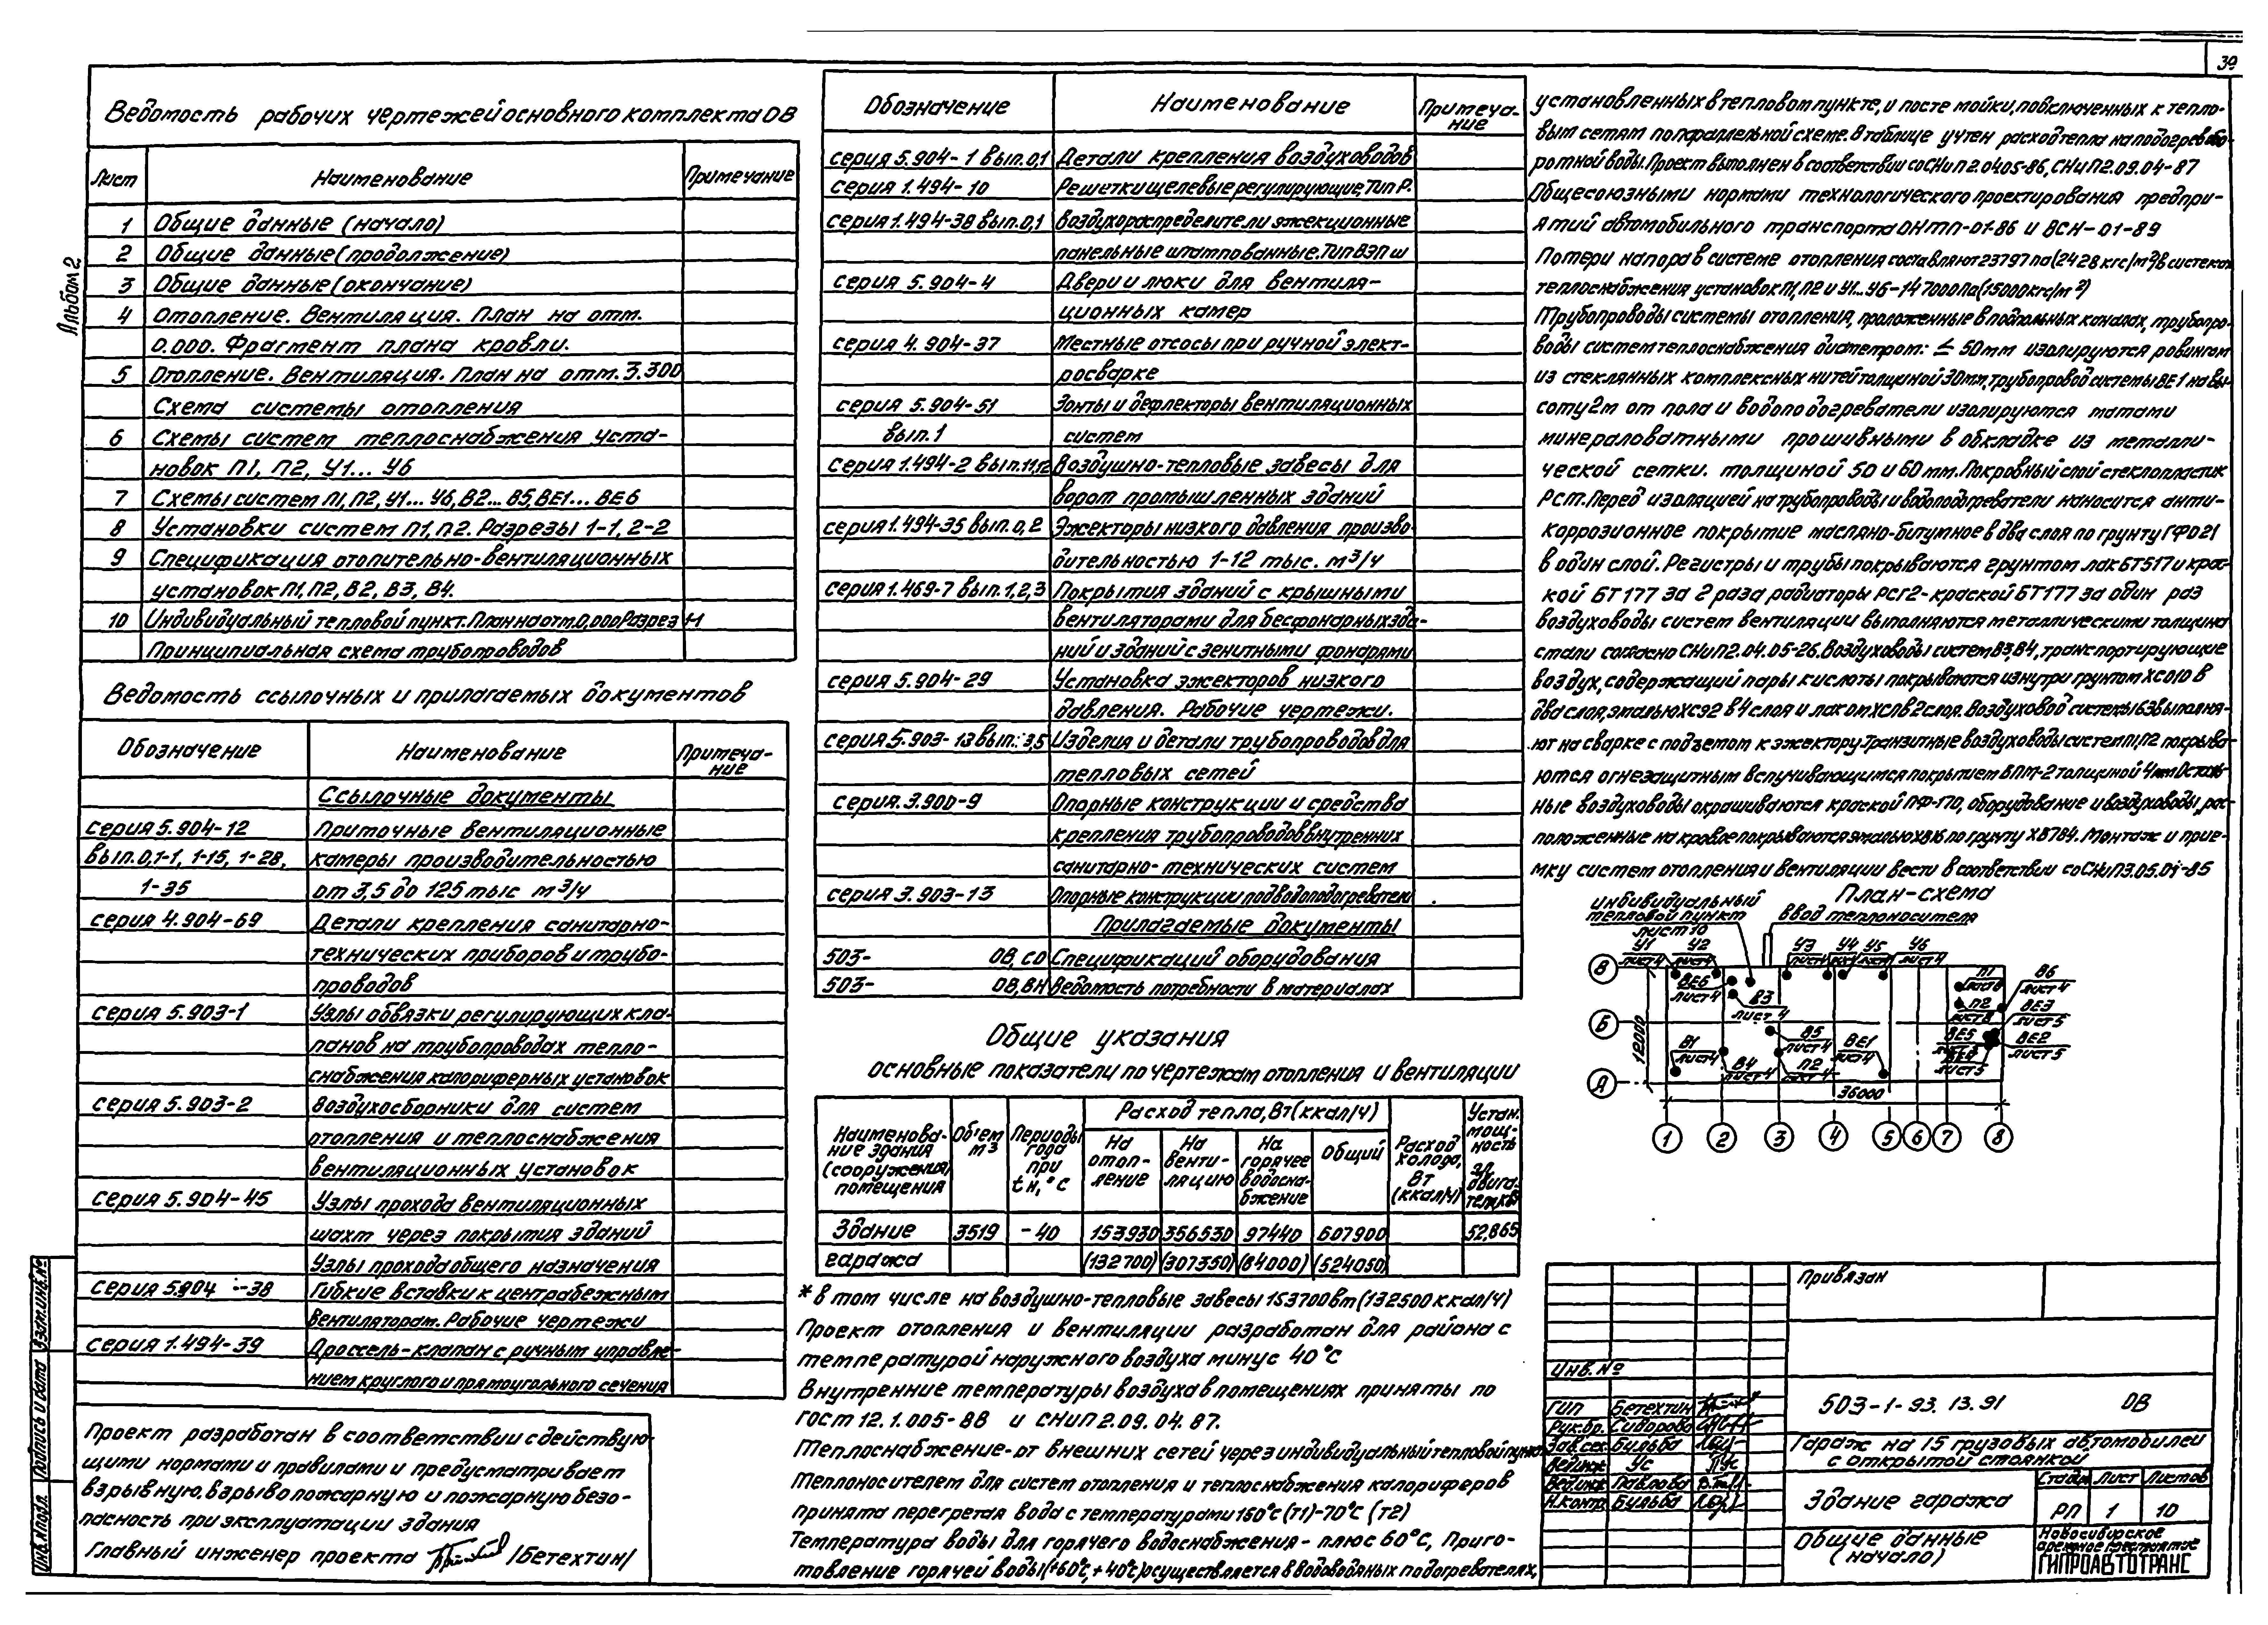 39
Альбом 2
Ведомость рабочих чертежей основного комплекта ОВ
Лист Наименование Примечание
1 Общие данные (начало)
2 Общие данные (продолжение)
3 Общие данные (окончание)
4 Отопление. Вентиляция. План на отм.
0.000. Фрагмент плана кровли.
5 Отопление. Вентиляция. План на отм. 3.300
Схема системы отопления
6 Схемы систем теплоснабжения уста-
новок П1, П2, У1... У6
7 Схемы систем П1, П2, У1... У6, В2... В5, ВЕ1... ВЕ6
8 Установки систем П1, П2. Разрезы 1-1, 2-2
9 Спецификация отопительно-вентиляционных
установок П1, П2, В2, В3, В4.
10 Индивидуальный тепловой пункт. План на отм. 0,000 Разрез 1-1
Принципиальная схема трубопроводов
Ведомость ссылочных и прилагаемых документов
Обозначение Наименование Примеча-
ние
Ссылочные документы
серия 5.904-12 Приточные вентиляционные
вып. 0,1-1, 1-15, 1-28, камеры производительностью
1-35 от 3,5 до 125 тыс м³/ч
серия 4.904-69 Детали крепления санитарно-
технических приборов и трубо-
проводов
серия 5.903-1 Узлы обвязки регулирующих кла-
панов на трубопроводах тепло-
снабжения калориферных установок
серия 5.903-2 Воздухосборники для систем
отопления и теплоснабжения
вентиляционных установок
серия 5.904-45 Узлы прохода вентиляционных
шахт через покрытия зданий
Узлы прохода общего назначения
серия 5.904 -38 Гибкие вставки к центробежным
вентиляторам. Рабочие чертежи
серия 1.494-39 Дроссель-клапан с ручным управле-
нием круглого и прямоугольного сечения
Проект разработан в соответствии с действую-
щими нормами и правилами и предусматривает
взрывную, взрывопожарную и пожарную безо-
пасность при эксплуатации здания
Главный инженер проекта /Бетехтин/
Взам. инв. №
Подпись и дата
Инв. № подл.
Обозначение Наименование Примеча-
ние
серия 5.904-1 вып. 0,1 Детали крепления воздуховодов
серия 1.494-10 Решетки щелевые регулирующие, Тип Р.
серия 1.494-38 вып. 0,1 Воздухораспределители эжекционные
панельные штампованные. Тип ВЭПш
серия 5.904-4 Двери и люки для вентиля-
ционных камер
серия 4.904-37 Местные отсосы при ручной элект-
росварке
серия 5.904-51 Зонты и дефлекторы вентиляционных
вып. 1 систем
серия 1.494-2 вып. 11,12 Воздушно-тепловые завесы для
ворот промышленных зданий
серия 1.494-35 вып. 0,2 Эжекторы низкого давления произво-
дительностью 1-12 тыс. м³/ч
серия 1.469-7 вып. 1,2,3 Покрытия зданий с крышными
вентиляторами для бесфонарных зда-
ний и зданий с зенитными фонарями
серия 5.904-29 Установка эжекторов низкого
давления. Рабочие чертежи.
серия 5.903-13 вып. 3,5 Изделия и детали трубопроводов для
тепловых сетей
серия. 3.900-9 Опорные конструкции и средства
крепления трубопроводов внутренних
санитарно-технических систем
серия 3.903-13 Опорные конструкции под водоподогреватели
Прилагаемые документы
503- ОВ, СО Спецификаций оборудования
503- ОВ, ВМ Ведомость потребности в материалах
Общие указания
основные показатели по чертежам отопления и вентиляции
Наименова-
ние здания
(сооружения)
помещения
Объем
м³
Периоды
года
при
tн, °С
Расход тепла, Вт (ккал/ч)
На
отоп-
ление
На
венти-
ляцию
На
горячее
водосна-
бжение
Общий
Расход
холода,
Вт
(ккал/ч)
Устан.
мощ-
ность
эл.
двига-
тел, кВт
Здание 3519 -40 153930 356530 97440 607900 52,865
гаража (132700) (307350) (84000) (524050)
* в том числе на воздушно-тепловые завесы 153700вт (132500 ккал/ч)
Проект отопления и вентиляции разработан для района с
температурой наружного воздуха минус 40°С
Внутренние температуры воздуха в помещениях приняты по
ГОСТ 12.1.005-88 и СНиП 2.09.04.87.
Теплоснабжение - от внешних сетей через индивидуальный тепловой пункт
Теплоносителем для систем отопления и теплоснабжения калориферов
принята перегретая вода с температурами 150°с (Т1)-70°С (Т2)
Температура воды для горячего водоснабжения - плюс 60°С, Приго-
товление горячей воды (+60°с, +40°с) осуществляется в водоводяных подогревателях,
установленных в тепловом пункте, и посте мойки, подключенных к тепло-
вым сетям по параллельной схеме. В таблице учтен расход тепла на подогрев обо-
ротной воды. Проект выполнен в соответствии со СНиП 2.04.05-86, СНиП 2.09.04-87
Общесоюзными нормами технологического проектирования предпри-
ятий автомобильного транспорта ОНТП-01-86 и ВСН-01-89
Потери напора в системе отопления составляют 23797 па (2428 кгс/м²) в системах
теплоснабжения установок П1, П2 и У1... У6 - 147000 Па (15000 кгс/м²)
Трубопроводы системы отопления, проложенные в подпольных каналах, трубопро-
воды систем теплоснабжения диаметром: ≤ 50мм изолируются ровингом
из стеклянных комплексных нитей толщиной 30мм, трубопровод системы ВЕ1 на вы-
соту 2м от пола и водоподогреватели изолируются матами
минераловатными прошивными в обкладке из металли-
ческой сетки. толщиной 50 и 60 мм. Покровный слой стеклопластик
Рст. Перед изоляцией на трубопроводы и водоподогреватели наносится анти-
коррозионное покрытие масляно-битумное в два слоя по грунту ГФ021
в один слой. Регистры и трубы покрываются грунтом лак БТ577 и крас-
кой БТ177 за 2 раза радиаторы РСГ2 - краской БТ177 за один раз
Воздуховоды систем вентиляции выполняются металлическими толщина
стали согласно СНиП 2.04.05-26. Воздуховоды систем В3, В4, транспортирующие
воздух, содержащий пары кислоты покрываются изнутри грунтом ХС010 в
два слоя, эмалью ХС92 в 4 слоя и лаком ХСЛ в 2 слоя. Воздуховод системы 63 выполня-
ют на сварке с подъемом к эжектору. Транзитные воздуховоды систем П1, П2 покрыва-
ются огнезащитным вспучивающимся покрытием ВПМ-2 толщиной 4 мм Осталь-
ные воздуховоды окрашиваются краской ПФ-170, оборудование и воздуховоды, рас-
положенные на кровле покрываются эмалью ХВ16 по грунту ХВ784. Монтаж и прие-
мку систем отопления и вентиляции вести в соответствии со СНиП 3.05.01-85
План-схема
индивидуальный
тепловой пункт
лист 10
ввод теплоносителя
У1 лист 4
У2 лист 4
У3 лист 4
У4 лист 4
У5 лист 4
У6 лист 4
ВЕ6 лист 4
В3 лист 4
П1 лист 8
П2 лист 8
В6 лист 4
ВЕ3 лист 5
ВЕ2 лист 5
ВЕ5
ВЕ4 лист 5
В1 лист 4
В4 лист 4
В5 лист 4
П2 лист 4
ВЕ1 лист 4
В Б А
12000
36000
1 2 3 4 5 6 7 8
Привязан
Инв. №
ГИП Бетехтин
Рук.бр. Сидорова
Зав.сек. Бульба
Вед.инж. Ус
Вед.инж. Павлова
Н.контр. Бульба
503-1-93.13.91 ОВ
Гараж на 15 грузовых автомобилей
с открытой стоянкой
Здание гаража
Стадия Лист Листов
РП 1 10
Общие данные
(начало)
Новосибирское
арендное предприятие
ГИПРОАВТОТРАНС